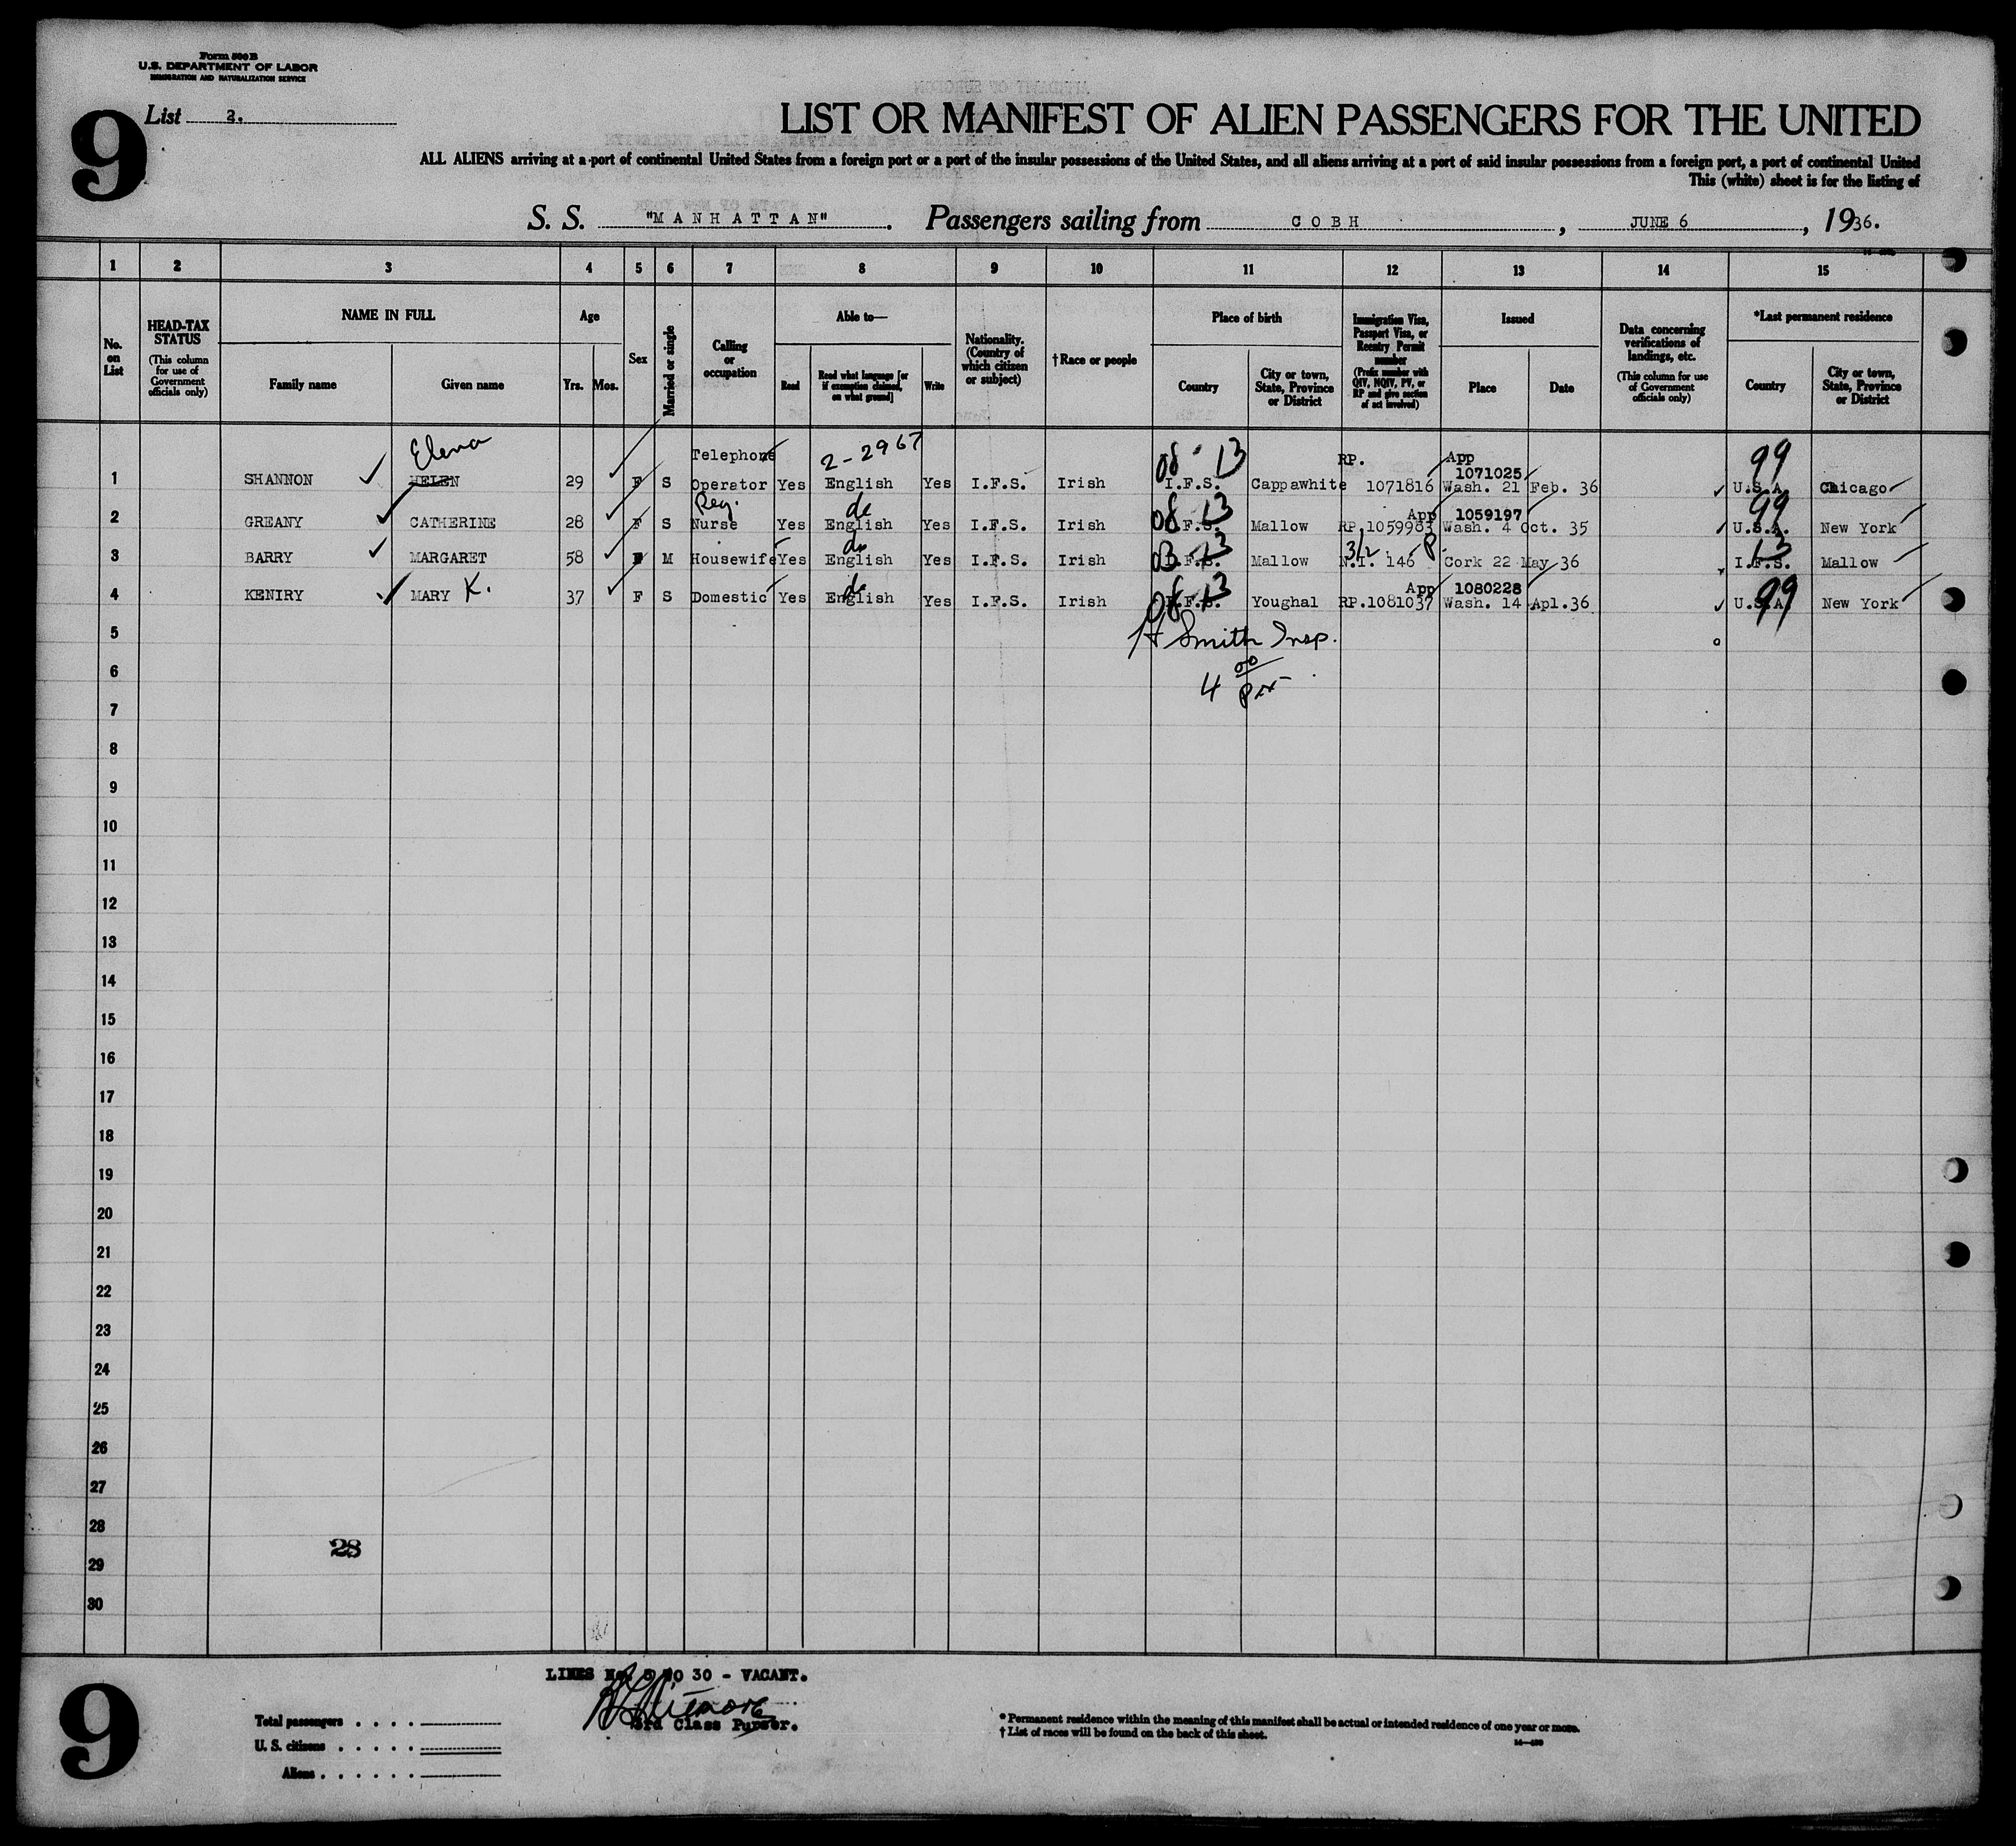 Form 500 B
U.S. DEPARTMENT OF LABOR
IMMIGRATION AND NATURALIZATION SERVICE
9
List 2.
LIST OR MANIFEST OF ALIEN PASSENGERS FOR THE UNITED
ALL ALIENS arriving at a port of continental United States from a foreign port or a port of the insular possessions of the United States, and all aliens arriving at a port of said insular possessions from a foreign port, a port of continental United
This (white) sheet is for the listing of
S. S. "MANHATTAN". Passengers sailing from COBH, JUNE 6, 1936.
1 2 3 4 5 6 7 8 9 10 11 12 13 14 15
No. on List
HEAD-TAX STATUS (This column for use of Government officials only)
NAME IN FULL
Family name
Given name
Age
Yrs. Mos.
Sex
Married or single
Calling or occupation
Able to—
Read
Read what language [or if exemption claimed, on what ground]
Write
Nationality. (Country of which citizen or subject)
†Race or people
Place of birth
Country
City or town, State, Province or District
Immigration Visa, Passport Visa, or Reentry Permit number (Prefix number with QIV, NQIV, PV, or RP and give section of act involved)
Issued
Place
Date
Data concerning verifications of landings, etc. (This column for use of Government officials only)
*Last permanent residence
Country
City or town, State, Province or District
Elena Telephone 2-2967 08-13 RP. App 1071025 99
1 SHANNON HELEN 29 F S Operator Yes English Yes I.F.S. Irish I.F.S. Cappawhite 1071816 Wash. 21 Feb. 36 U.S.A. Chicago
Reg. de 08 13 App 1059197 99
2 GREANY CATHERINE 28 F S Nurse Yes English Yes I.F.S. Irish I.F.S. Mallow RP.1059983 Wash. 4 Oct. 35 U.S.A. New York
do 03-13 3/2 -P. 13
3 BARRY MARGARET 58 F M Housewife Yes English Yes I.F.S. Irish I.F.S. Mallow N.I. 146 Cork 22 May 36 I.F.S. Mallow
de 08-13 App 1080228 99
4 KENIRY MARY K. 37 F S Domestic Yes English Yes I.F.S. Irish I.F.S. Youghal RP.1081037 Wash. 14 Apl.36 U.S.A. New York
5
H Smith Insp.
6
4 00
7
8
9
10
11
12
13
14
15
16
17
18
19
20
21
22
23
24
25
26
27
28
28
29
30
LINES No. 5 TO 30 - VACANT.
3rd Class Purser.
9
Total passengers
U. S. citizens
Aliens
* Permanent residence within the meaning of this manifest shall be actual or intended residence of one year or more.
† List of races will be found on the back of this sheet.